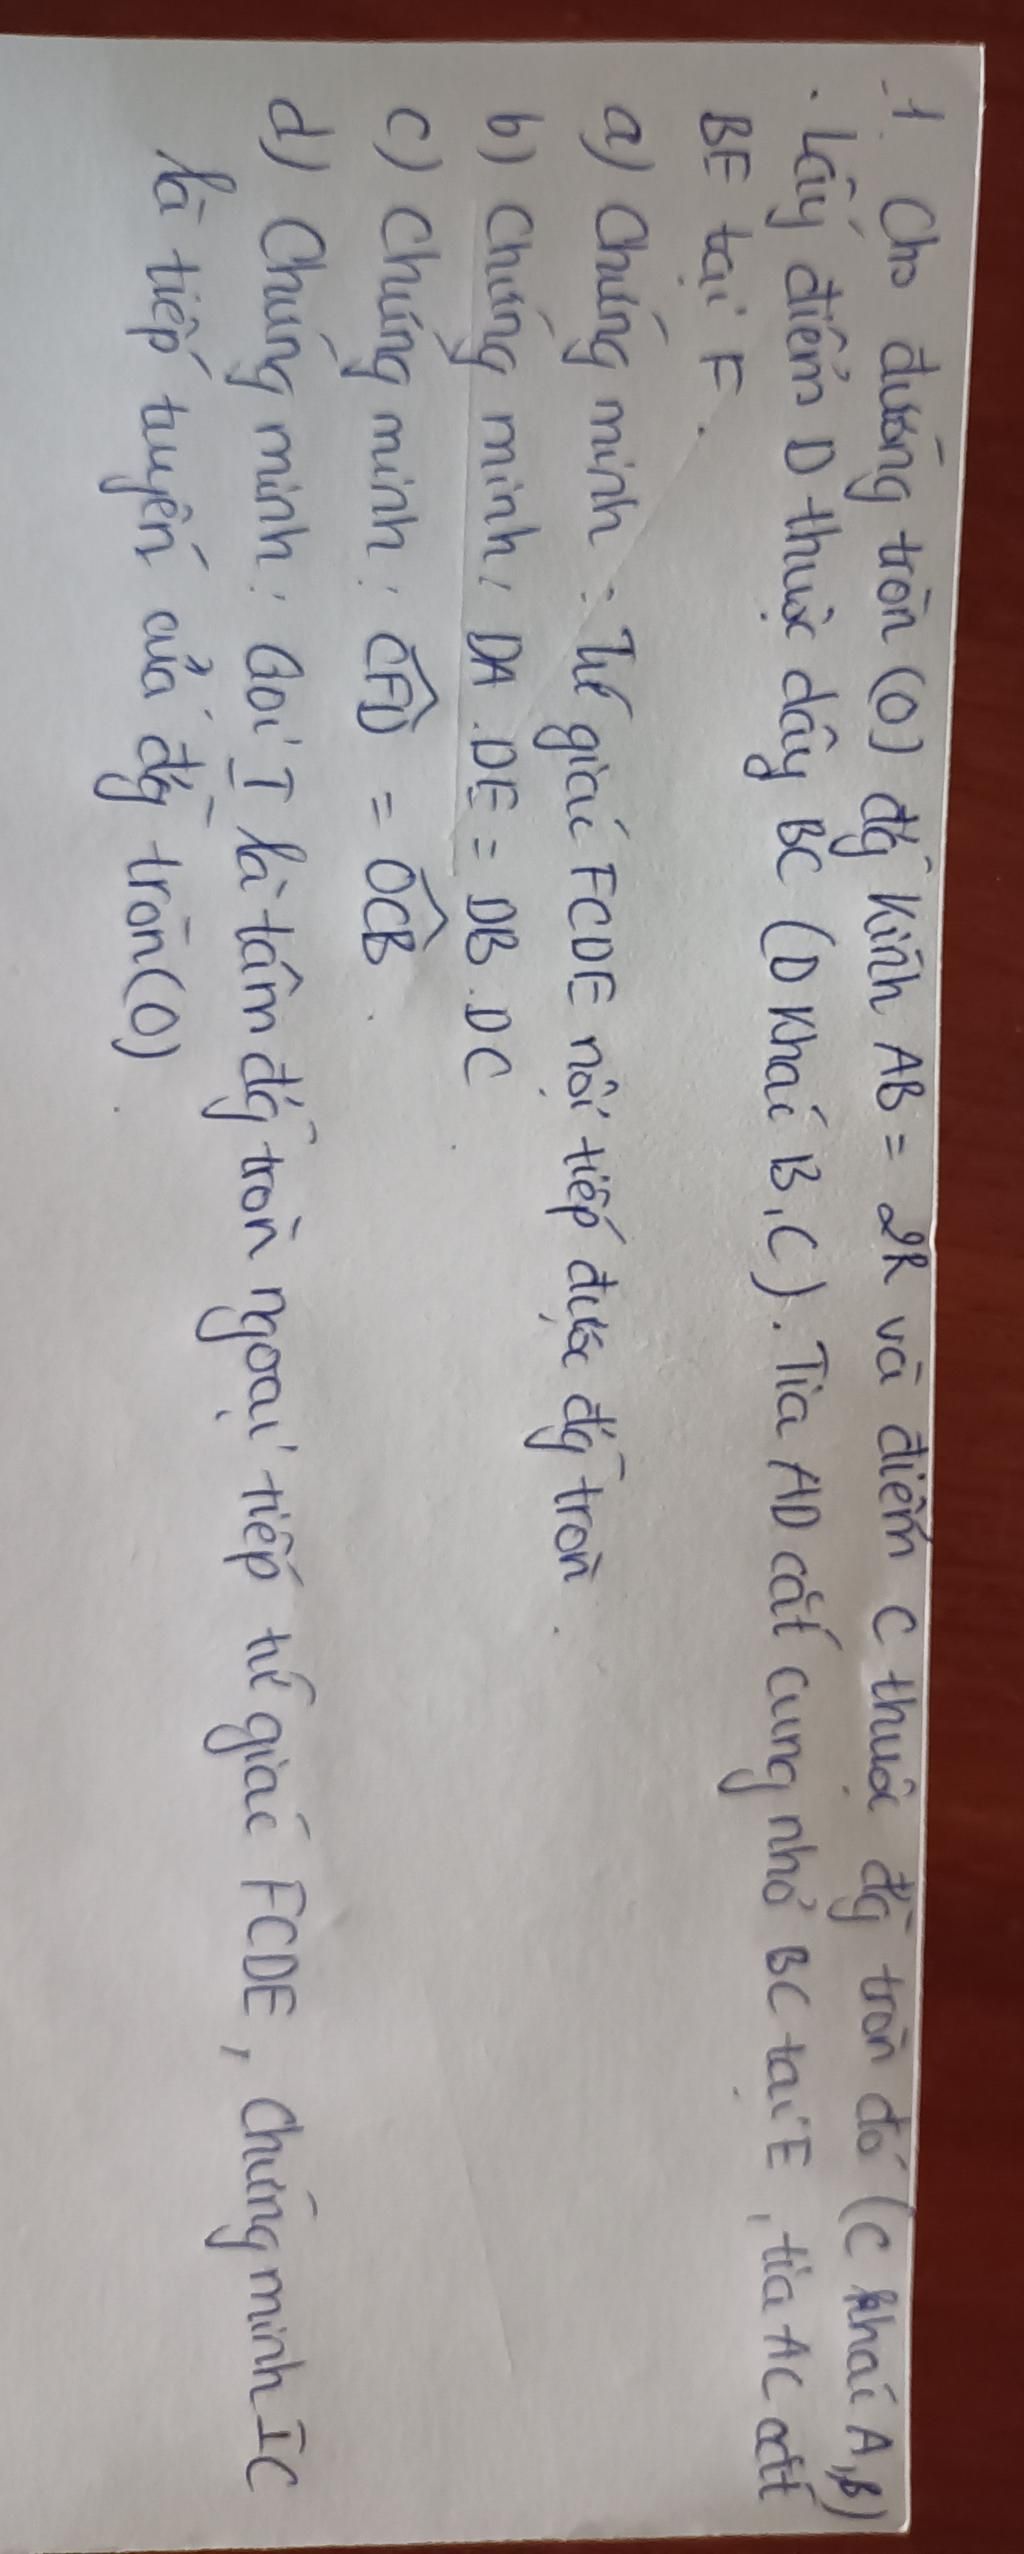 1. Cho đường tròn (O) đg kính AB = 2R và điểm C thuộc đg tròn đó (C khác A,B)
. Lấy điểm D thuộc dây BC (D khác B,C). Tia AD cắt cung nhỏ BC tại E, tia AC cắt
BE tại F.
a) Chứng minh : tứ giác FCDE nội tiếp được đg tròn.
b) Chứng minh: DA.DE = DB.DC
c) Chứng minh: CFD = OCB.
d) Chứng minh: Gọi I là tâm đg tròn ngoại tiếp tứ giác FCDE, chứng minh IC
là tiếp tuyến của đg tròn (O).